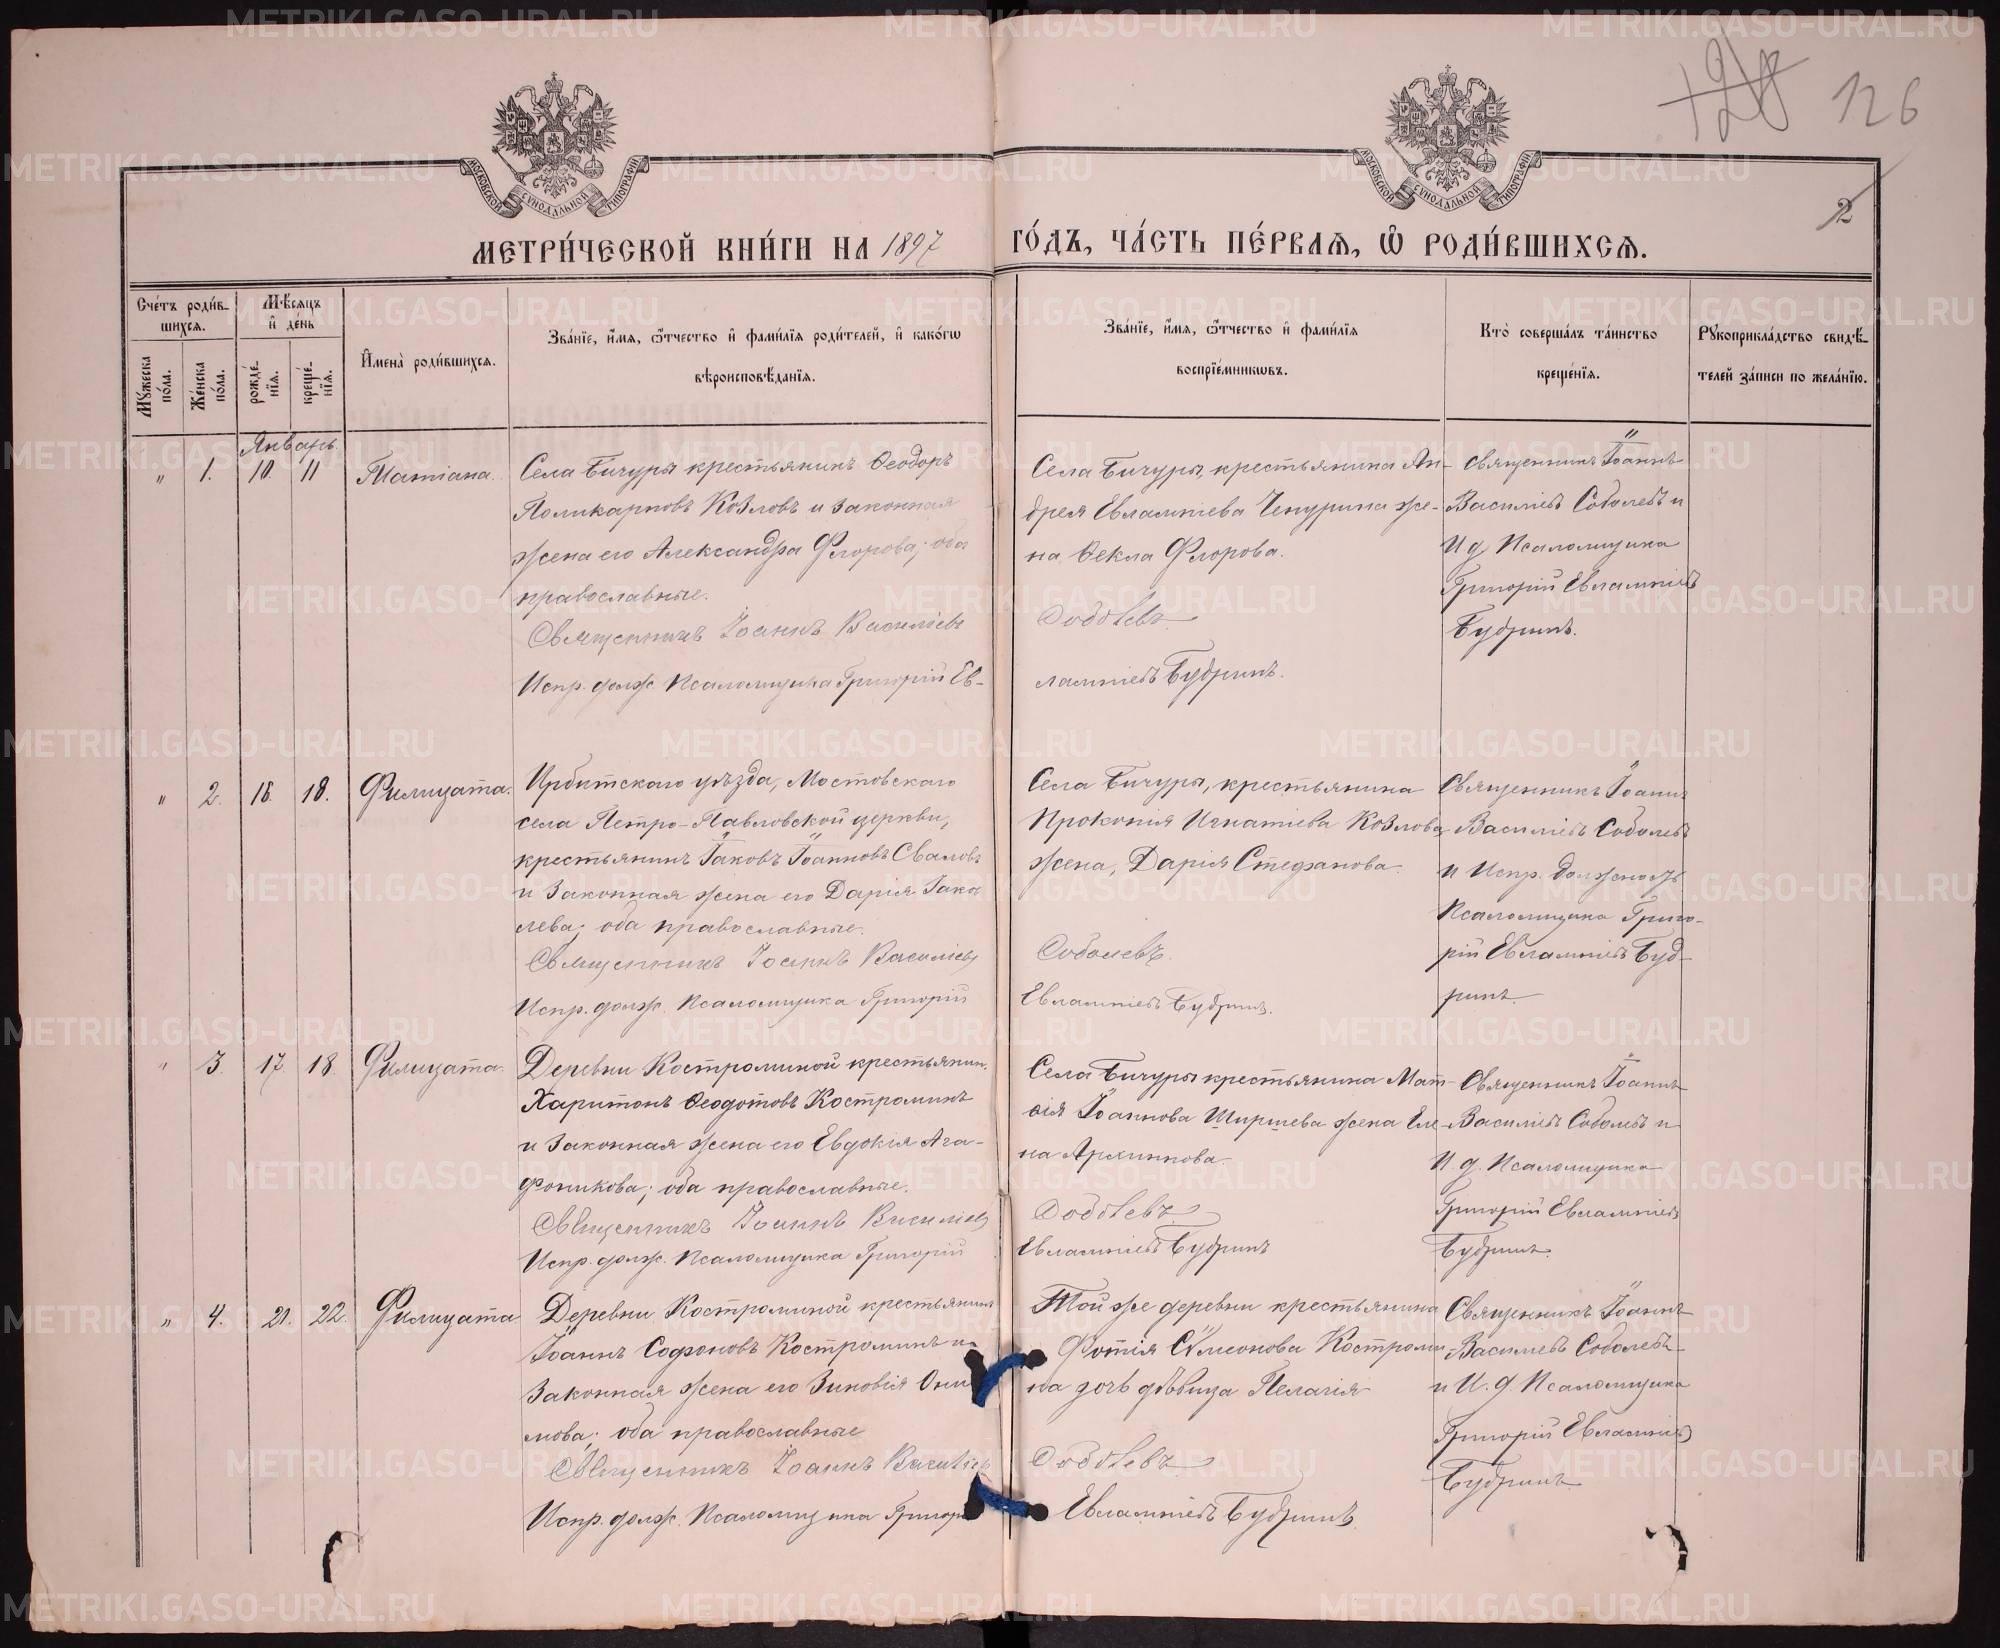 126
2
МОСКОВСКОЙ СѴНОДАЛЬНОЙ ТИПОГРАФІИ
МОСКОВСКОЙ СѴНОДАЛЬНОЙ ТИПОГРАФІИ
МЕТРИ́ЧЕСКОЙ КНИ́ГИ НА 1897 ГО́ДЪ, ЧА́СТЬ ПЕ́РВАЯ, Ѽ РОДИ́ВШИХСЯ.
Сче́тъ роди́в-
шихся.
Мꙋжеска по́ла.
Же́нска по́ла.
Мѣсяцъ и де́нь
рожде́-
нїя.
креще́-
нїя.
Имена̀ роди́вшихся.
Зва́нїе, и́мя, ѻ҆́тчество и фами́лїя роди́телей, и како́гѡ
вѣроисповѣданїя.
Зва́нїе, и́мя, ѻ҆́тчество и фами́лїя
воспрїе́мникѡвъ.
Кто̀ соверша́лъ та́инство
креще́нїя.
Рꙋкоприкла́дство свидѣ-
телей за́писи по жела́нїю.
Январь.
" 1. 10. 11 Татіана.
Села Бичуры крестьянинъ Ѳеодоръ
Поликарповъ Козловъ и законная
жена его Александра Флорова; оба
православные.
Священникъ Іоаннъ Василіевъ
Испр. долж. Псаломщика Григорій Ев-
Села Бичуры, крестьянина Ан-
дрея Евлампіева Чепурина же-
на Ѳекла Флорова.
Соболевъ
лампіевъ Будринъ.
Священникъ Іоаннъ
Василіевъ Соболевъ и
И д Псаломщика
Григорій Евлампіевъ
Будринъ.
" 2. 16. 18. Филицата.
Ирбитскаго уѣзда, Мостовскаго
села Петро-Павловской церкви,
крестьянинъ Іаковъ Іоанновъ Сваловъ
и законная жена его Дарія Іако
лева; оба православные.
Священникъ Іоаннъ Василіевъ
Испр. долж. Псаломщика Григорій
Села Бичуры, крестьянина
Прокопія Игнатіева Козлова
жена, Дарія Стефанова.
Соболевъ.
Евлампіевъ Будринъ.
Священникъ Іоаннъ
Василіевъ Соболевъ
и Испр. должность
Псаломщика Григо-
рій Евлампіевъ Буд-
ринъ.
" 3. 17. 18. Филицата.
Деревни Костроминой крестьянин.
Харитонъ Ѳеодотовъ Костроминъ
и законная жена его Евдокія Ага-
фоникова; оба православные.
Священникъ Іоаннъ Василіевъ
Испр. долж. Псаломщика Григорій
Села Бичуры крестьянина Мат-
ѳія Іоаннова Ширшева жена Еле-
на Архиппова.
Соболевъ
Евлампіевъ Будринъ
Священникъ Іоаннъ
Василіевъ Соболевъ и
И. д. Псаломщика
Григорій Евлампіевъ
Будринъ.
" 4. 21. 22. Филицата
Деревни Костроминой крестьянинъ
Іоаннъ Софоновъ Костроминъ и
законная жена его Зиновія Они
мова; оба православные
Священникъ Іоаннъ Василіевъ
Испр. долж. Псаломщика Григорій
Той же деревни крестьянина
Фотія Сѵмеонова Костроми
на дочь дѣвица Пелагія
Соболевъ
Евлампіевъ Будринъ
Священникъ Іоаннъ
Василіевъ Соболевъ
и И. д Псаломщика
Григорій Евлампіевъ
Будринъ
METRIKI.GASO-URAL.RU